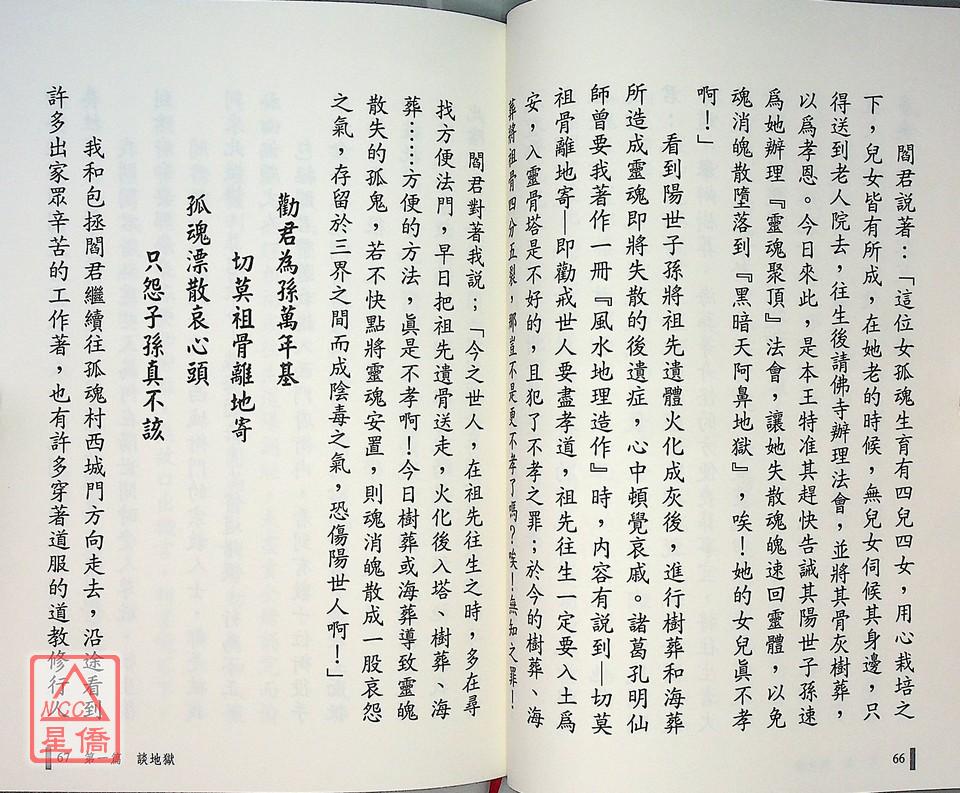 閻君說著：「這位女孤魂生育有四兒四女，用心栽培之
下，兒女皆有所成，在她老的時候，無兒女伺候其身邊，只
得送到老人院去，往生後請佛寺辦理法會，並將其骨灰樹葬，
以爲孝恩。今日來此，是本王特准其趕快告誡其陽世子孫速
爲她辦理『靈魂聚頂』法會，讓她失散魂魄速回靈體，以免
魂消魄散墮落到『黑暗天阿鼻地獄』，唉！她的女兒眞不孝
啊！」
看到陽世子孫將祖先遺體火化成灰後，進行樹葬和海葬
所造成靈魂即將失散的後遺症，心中頓覺哀戚。諸葛孔明仙
師曾要我著作一冊『風水地理造作』時，內容有說到—切莫
祖骨離地寄—即勸戒世人要盡孝道，祖先往生一定要入土爲
安，入靈骨塔是不好的，且犯了不孝之罪；於今的樹葬、海
葬將祖骨四分五裂，哪豈不是更不孝了嗎？唉！無知之罪！
66
閻君對著我說；「今之世人，在祖先往生之時，多在尋
找方便法門，早日把祖先遺骨送走，火化後入塔、樹葬、海
葬……方便的方法，眞是不孝啊！今日樹葬或海葬導致靈魄
散失的孤鬼，若不快點將靈魂安置，則魂消魄散成一股哀怨
之氣，存留於三界之間而成陰毒之氣，恐傷陽世人啊！」
勸君為孫萬年基
切莫祖骨離地寄
孤魂漂散哀心頭
只怨子孫真不該
我和包拯閻君繼續往孤魂村西城門方向走去，沿途看到
許多出家眾辛苦的工作著，也有許多穿著道服的道教修行人
67 第一篇 談地獄
NCC
星僑